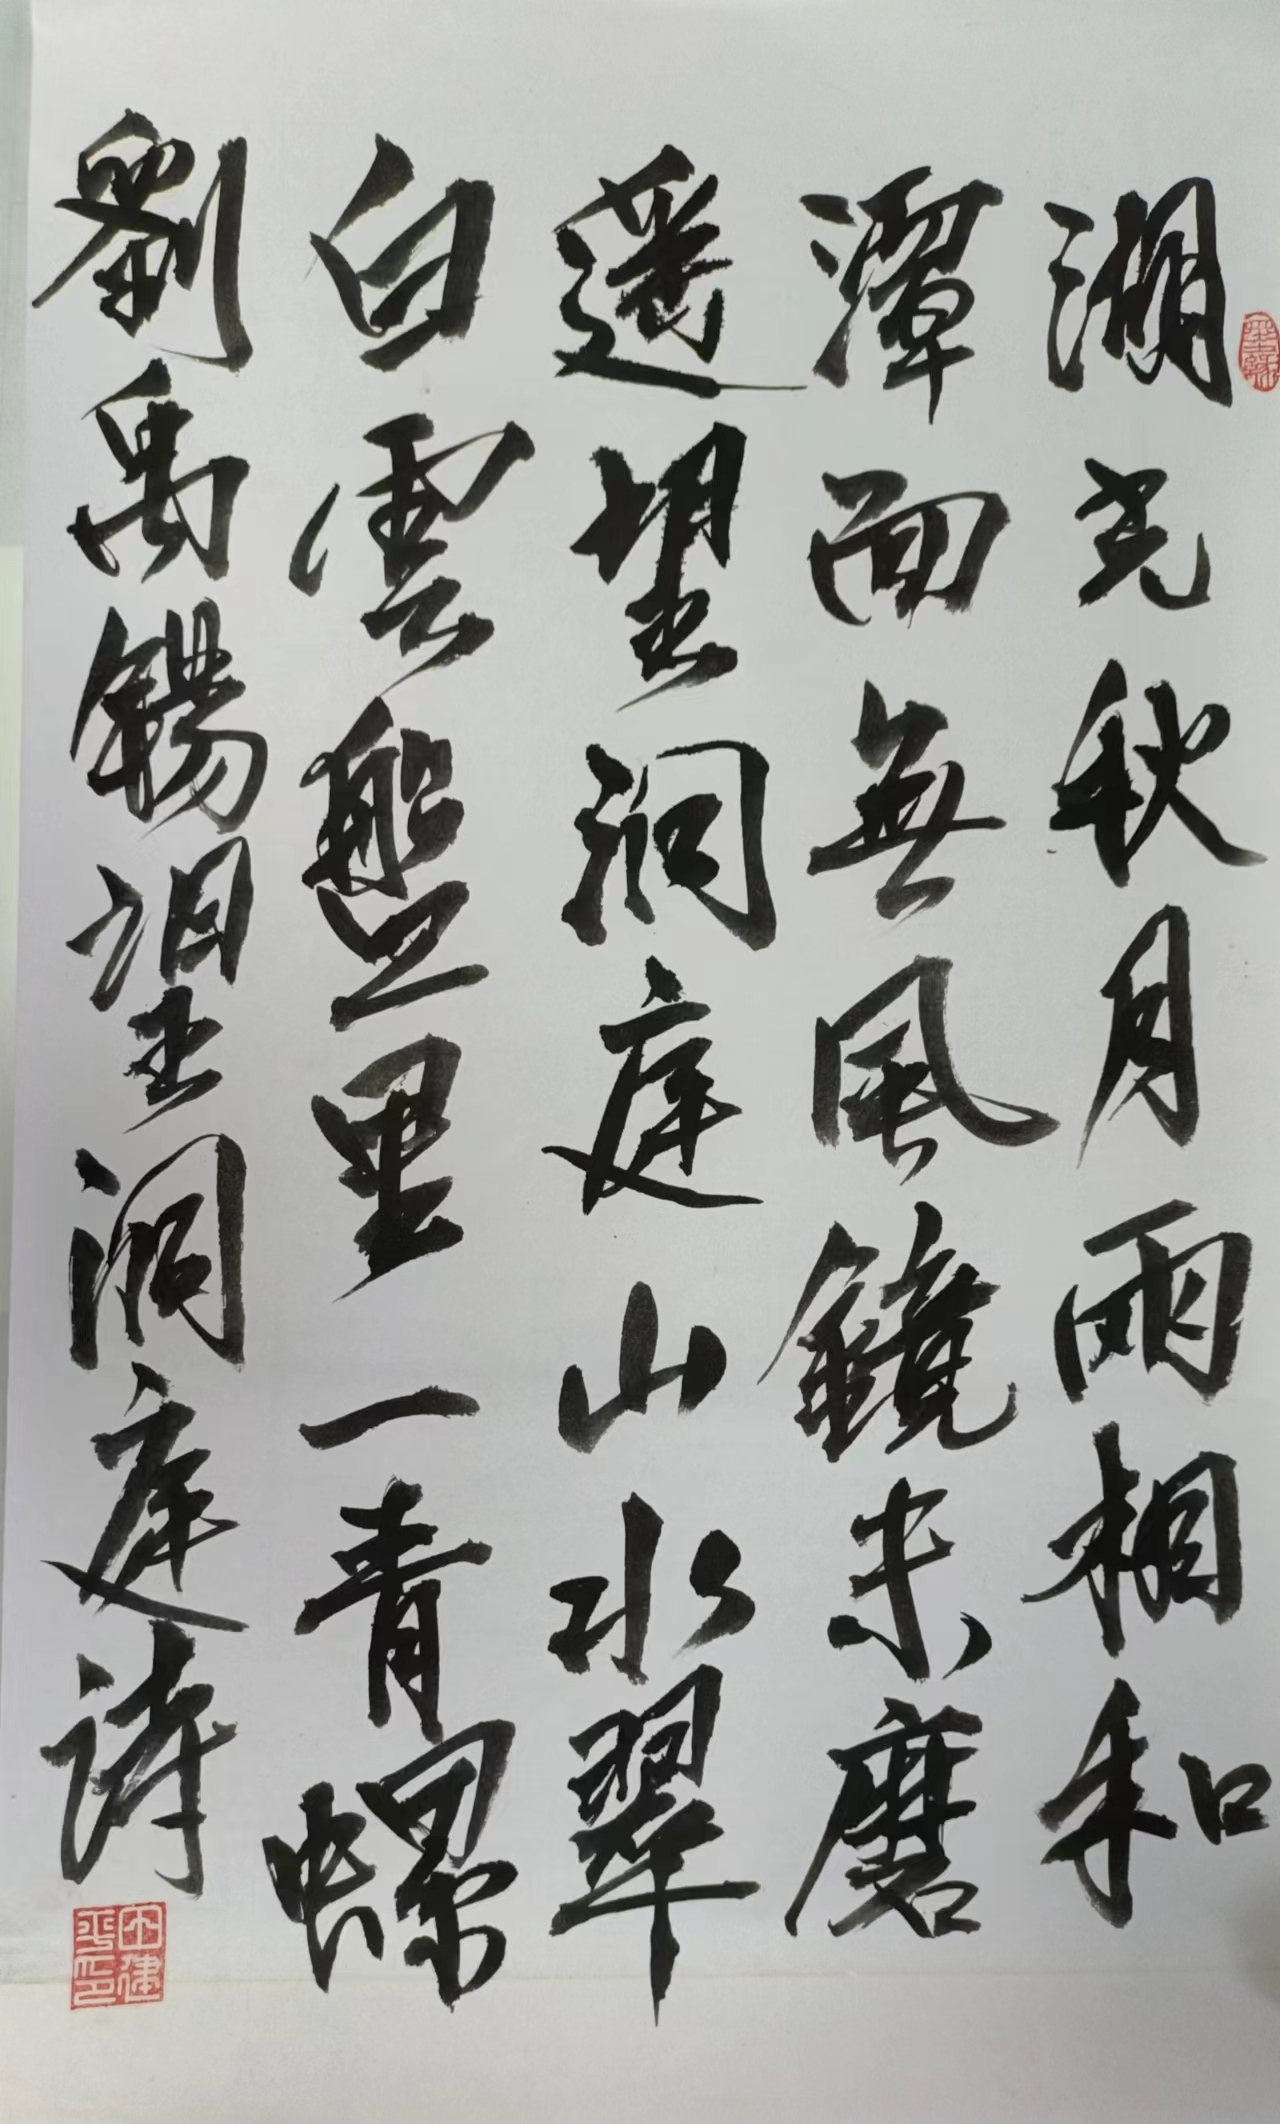 湖光秋月兩相和
潭面無風鏡未磨
遥望洞庭山水翠
白雲盤里一青螺
劉禹錫望洞庭詩
墨緣
田建平印